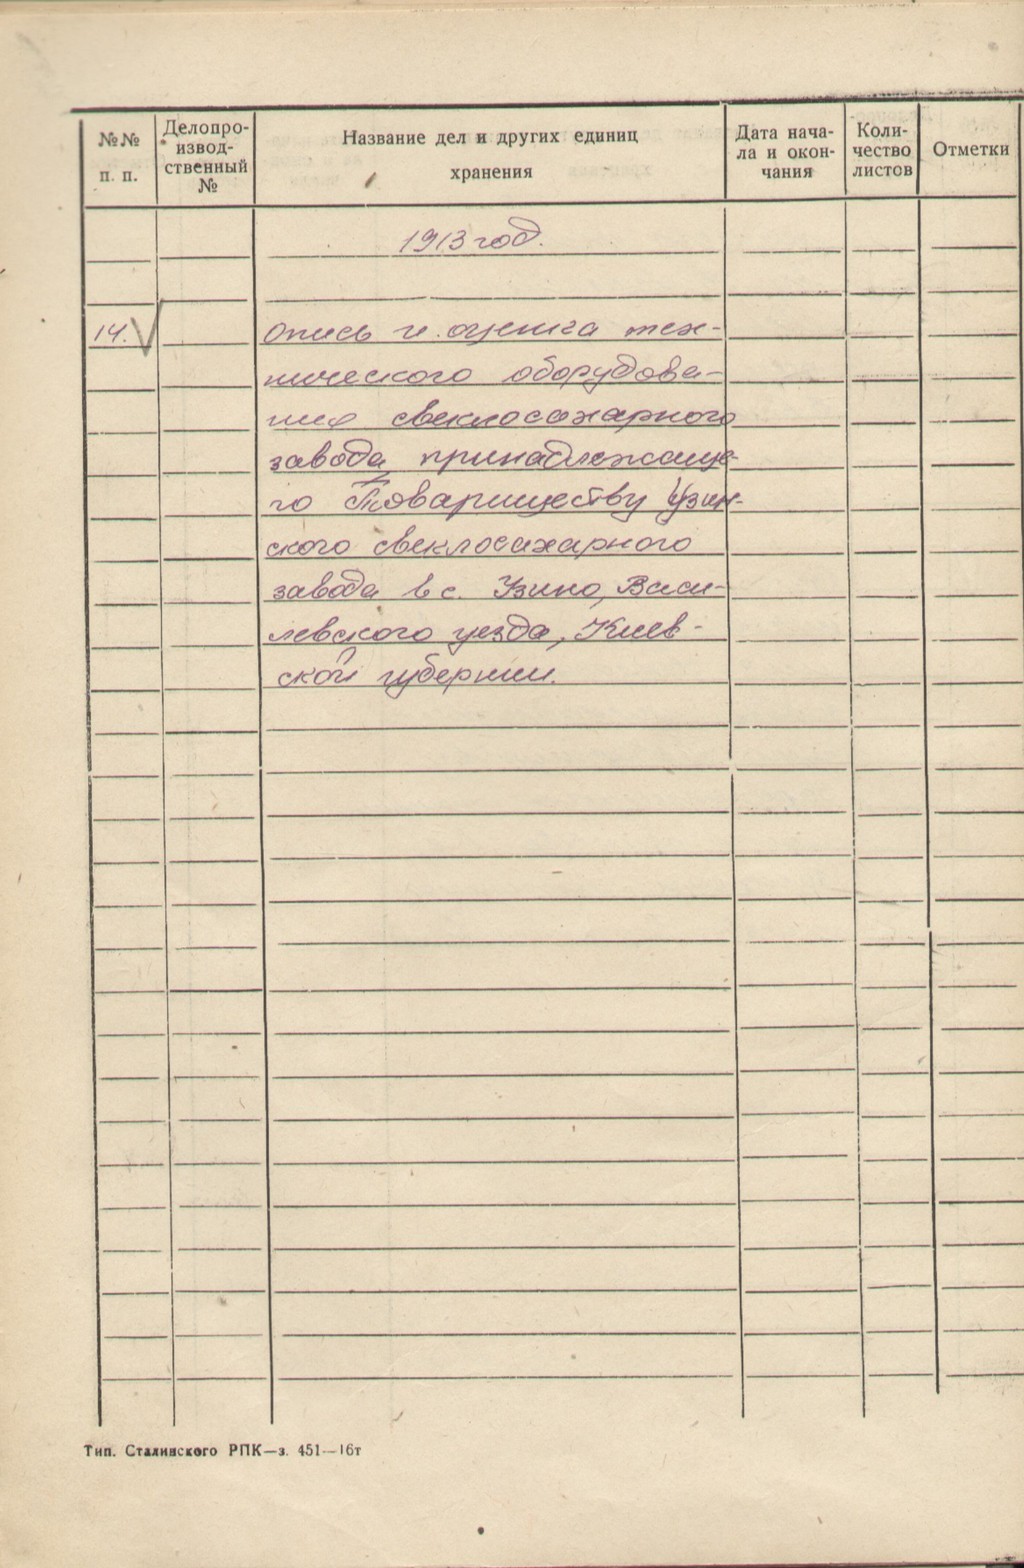 №№ п. п.
Делопро-
извод-
ственный
№
Название дел и других единиц
хранения
Дата нача-
ла и окон-
чания
Коли-
чество
листов
Отметки
1913 год.
14.
Опись и оценка тех-
нического оборудова-
ния свеклосахарного
завода, принадлежаще-
го Товариществу Узин-
ского свеклосахарного
завода в с. Узино, Васи-
левского уезда, Киев-
ской губернии.
Тип. Сталинского РПК—з. 451—16т